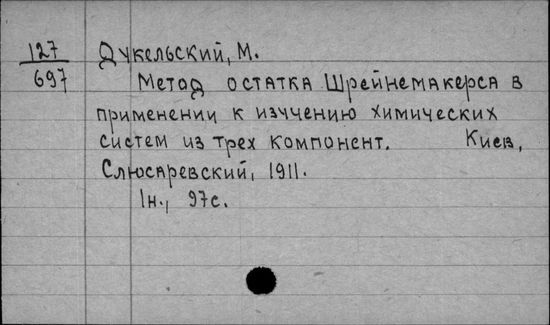 127
697
Дукельский, М.
Метод остатка Шрейнемакерса в
применении к изучению химических
систем из трех компонент. Киев,
Слюсаревский, 1911.
1н., 97с.